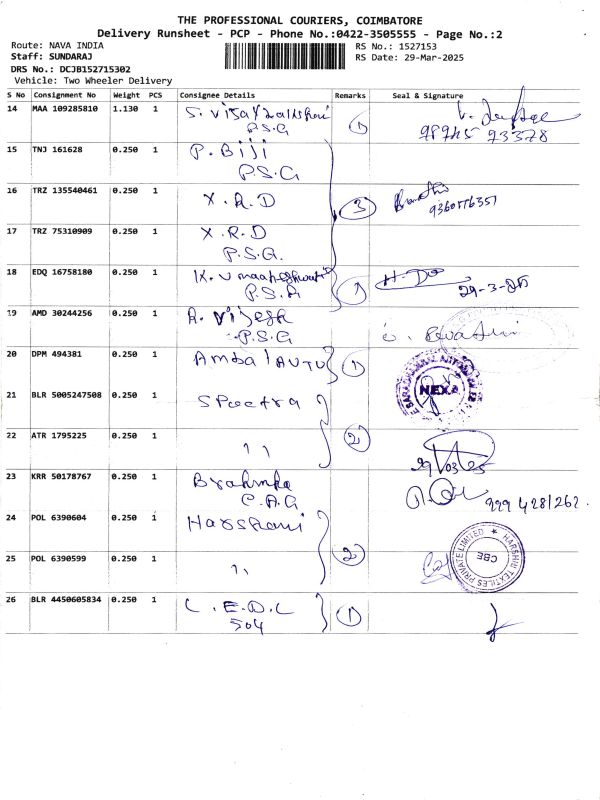 THE PROFESSIONAL COURIERS, COIMBATORE
Delivery Runsheet - PCP - Phone No.:0422-3505555 - Page No.:2
Route: NAVA INDIA
RS No.: 1527153
Staff: SUNDARAJ
RS Date: 29-Mar-2025
DRS No.: DCJB152715302
Vehicle: Two Wheeler Delivery
S No Consignment No Weight PCS Consignee Details Remarks Seal & Signature
14 MAA 109285810 1.130 1
P.S.G 1
15 TNJ 161628 0.250 1 P. Biji
P.S.G
16 TRZ 135540461 0.250 1 X.R.D 3
17 TRZ 75310909 0.250 1 X.R.D
P.S.G.
18 EDQ 16758180 0.250 1
P.S.G 1 29-3-25
19 AMD 30244256 0.250 1 A. Vijesh
P.S.G
20 DPM 494381 0.250 1 Ambal AUTO 1
NEXA
21 BLR 5005247508 0.250 1 Spectra
22 ATR 1795225 0.250 1 " 2
29/03/25
23 KRR 50178767 0.250 1
24 POL 6390604 0.250 1 Harshani
HARSHNI TEXTILES PRIVATE LIMITED
CBE
25 POL 6390599 0.250 1 " 2
26 BLR 4450605834 0.250 1 L.E.D.L 1
504